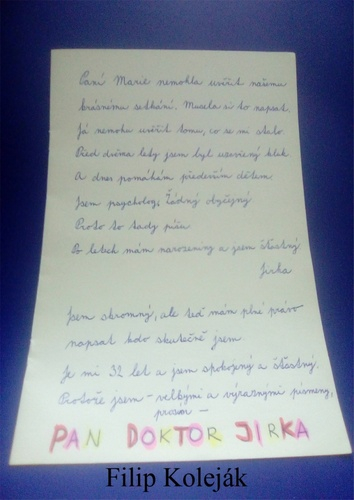 Paní Marie nemohla uvěřit našemu
krásnému setkání. Musela si to napsat.
Já nemohu uvěřit tomu, co se mi stalo.
Před dvěma lety jsem byl uzavřený kluk
A dnes pomáhám především dětem.
Jsem psycholog, Žádný obyčejný
Proto to tady píšu
Po letech mám narozeniny a jsem šťastný.
Jirka
Jsem skromný, ale teď mám plné právo
napsat kdo skutečně jsem
Je mi 32 let a jsem spokojený a šťastný.
Protože jsem - velkými a výraznými písmeny,
prosím -
PAN DOKTOR JIRKA
Filip Koleják